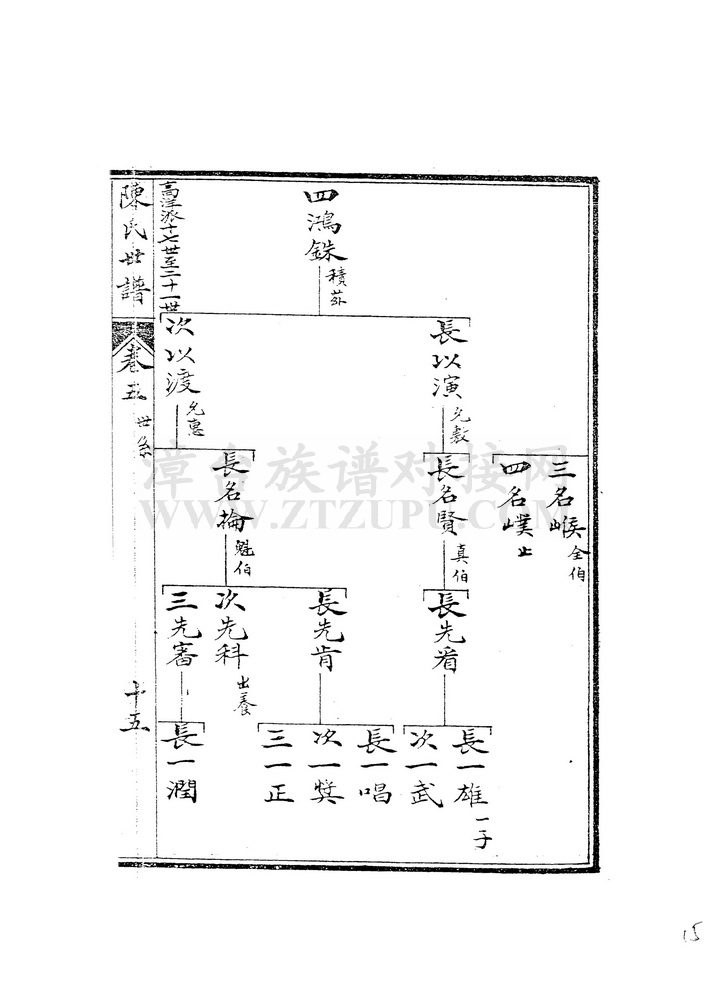 四鴻銖
積芬
長以演
允敷
次以渡
允惠
三名㬋
全伯
四名㠟
止
長名賢
真伯
長名掄
魁伯
長先看
長先肯
次先科
出養
三先審
長一雄
一子
次一武
長一唱
次一獎
三一正
長一潤
高洋派十七世至二十一世
陳氏世譜
卷五
世系
十五
漳台族谱对接网
WWW.ZTZUPU.COM
15